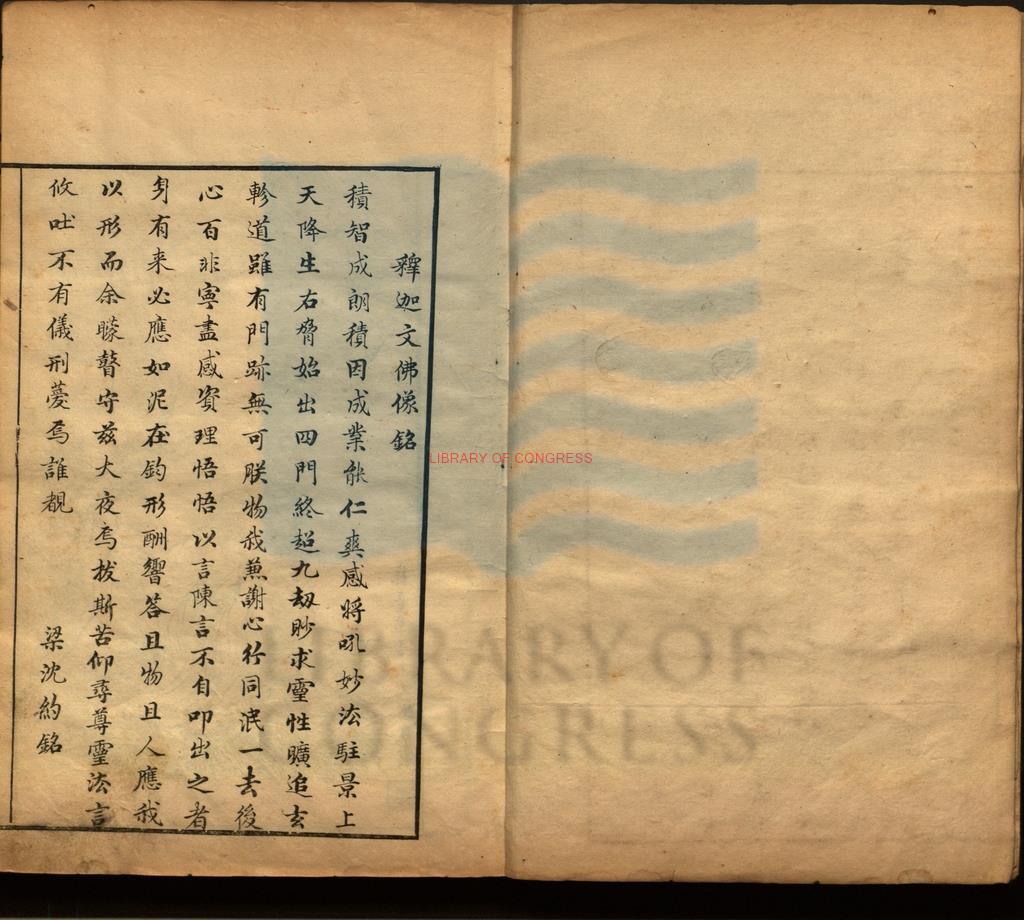 釋迦文佛像銘
積智成朗積因成業能仁奭感將吼妙法駐景上
天降生右脅始出四門終超九劫眇求靈性曠追玄
軫道雖有門跡無可朕物我蕪謝心行同泯一去後
心百非寧盡感資理悟悟以言陳言不自叩出之者
身有来必應如泥在鈞形酬響答且物且人應我
以形而余矇瞽守茲大夜焉拔斯苦仰尋尊靈法言
攸吐不有儀刑薆焉誰覩
梁沈約銘
LIBRARY OF CONGRESS
LIBRARY OF
CONGRESS